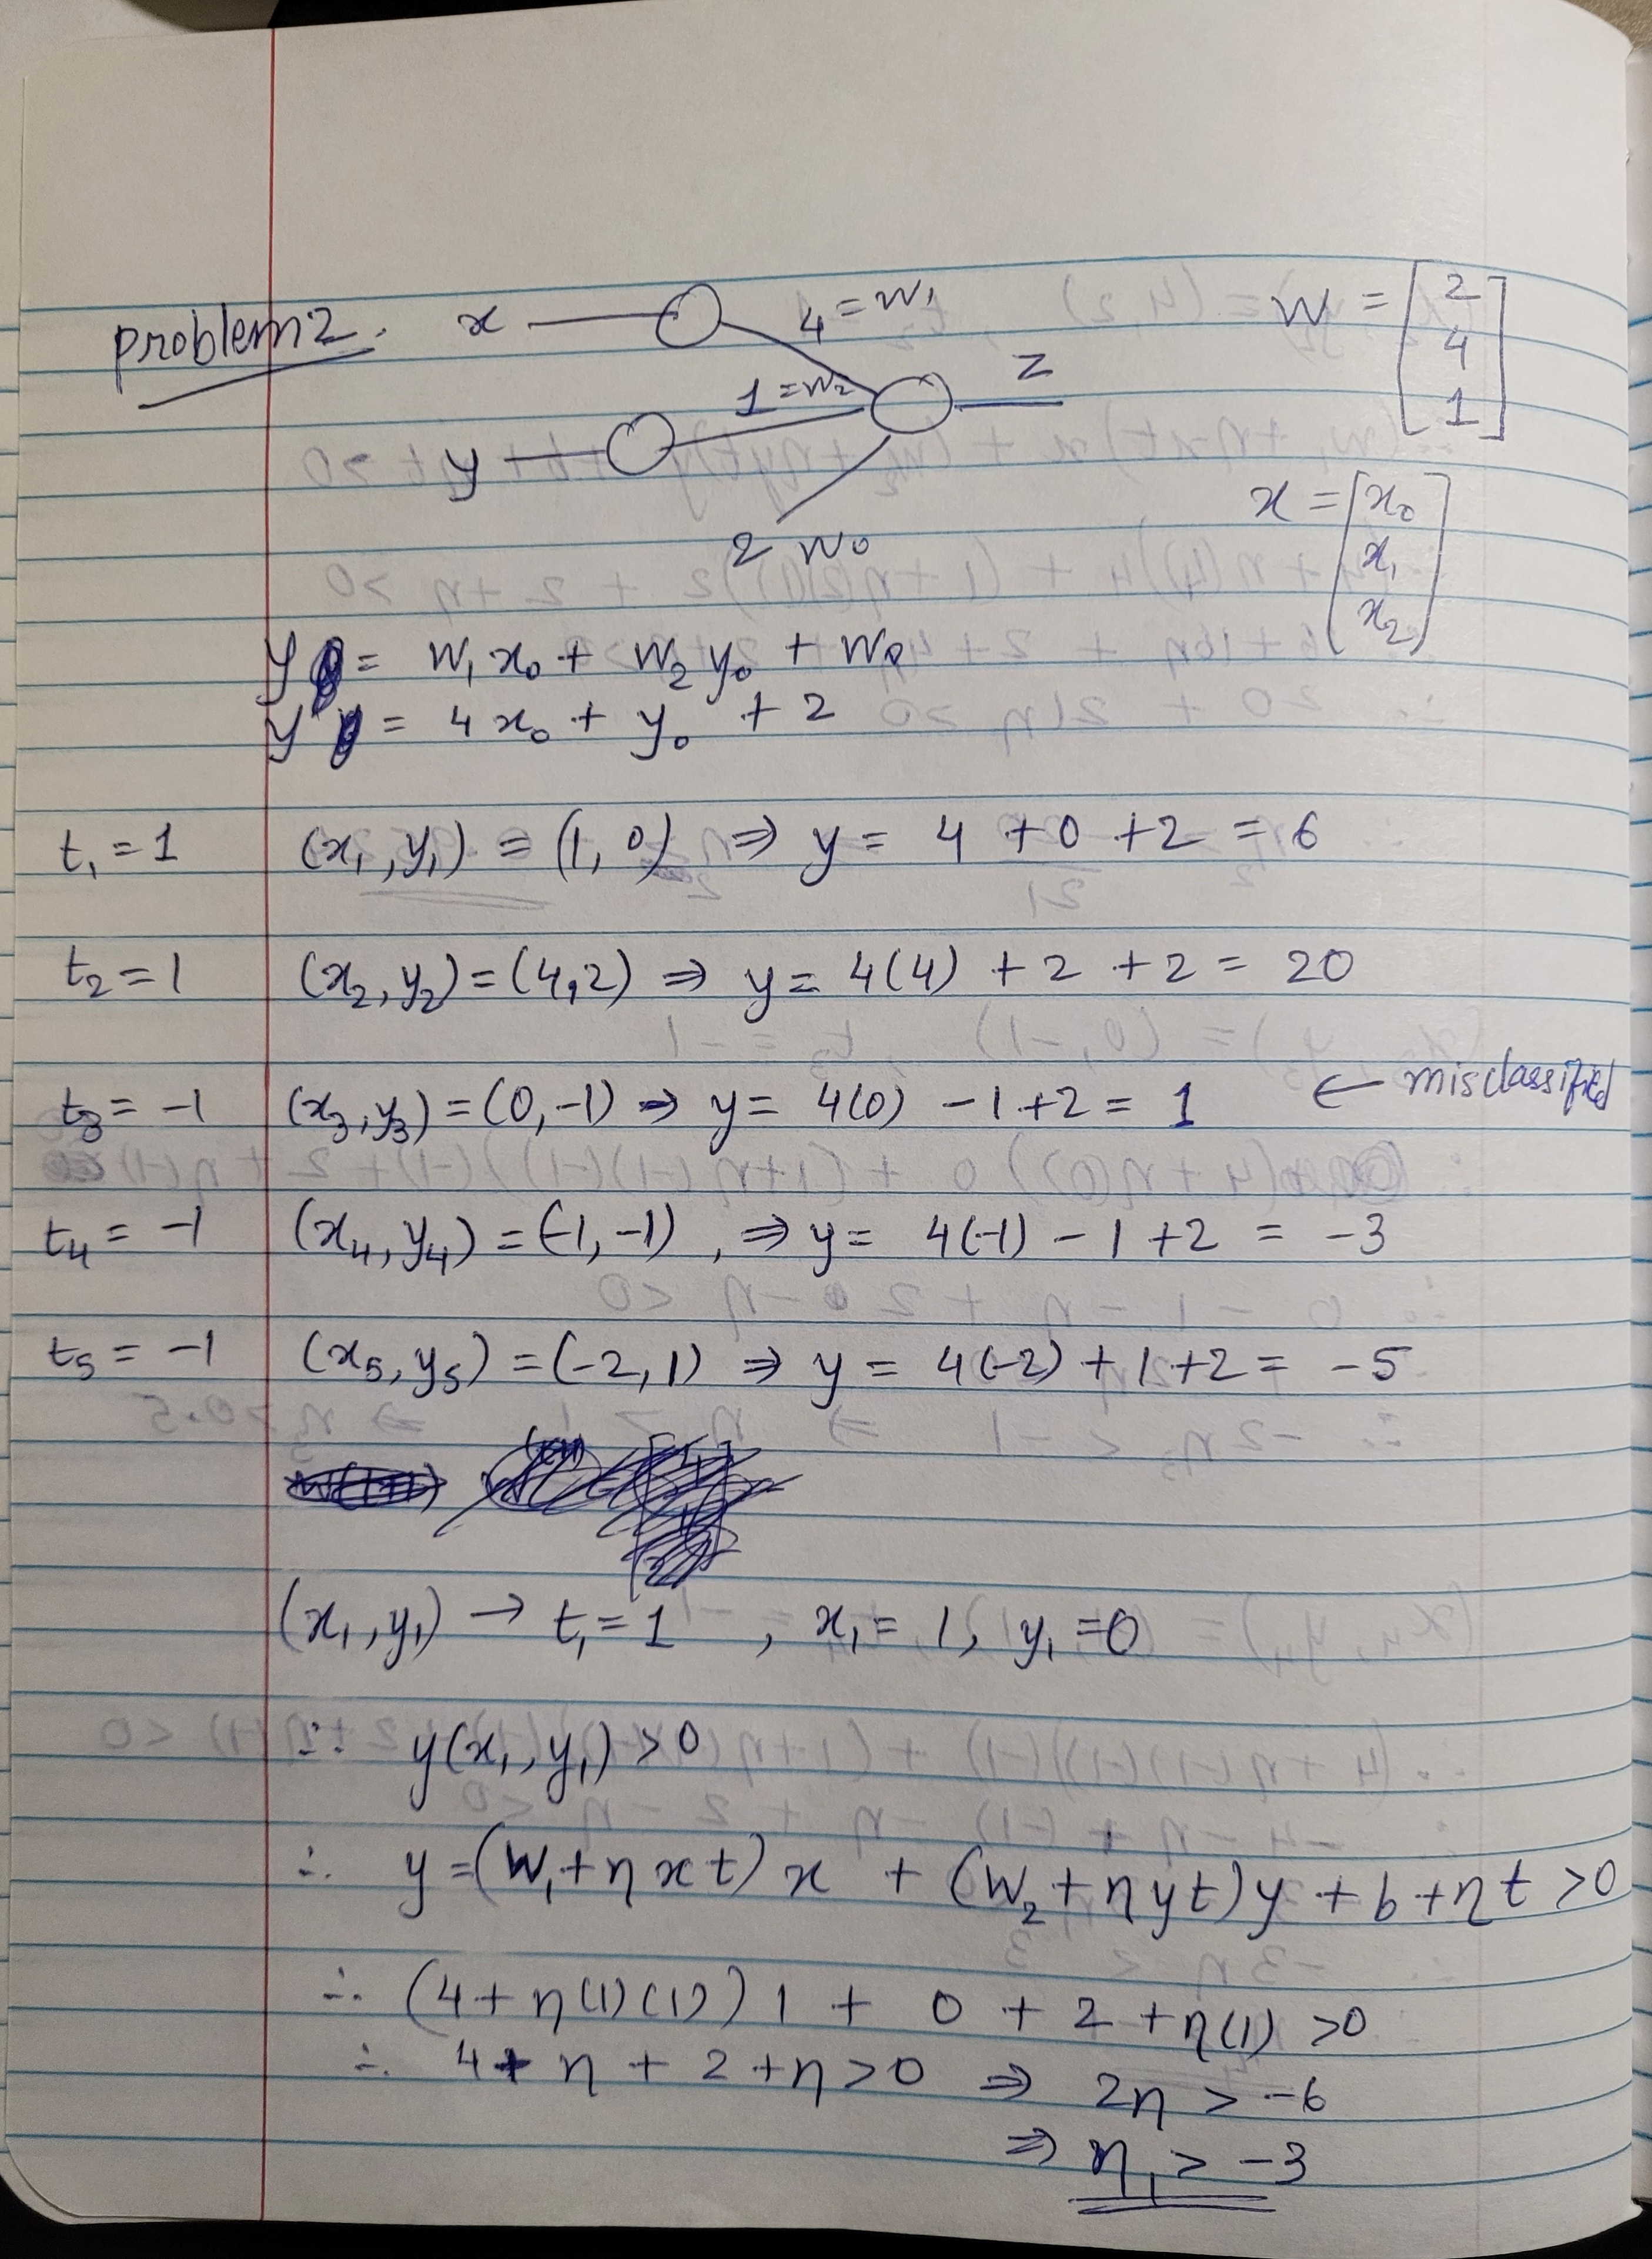 problem 2. x 4 = w₁ W = [2 4 1]
y 1 = w₂ z
2 w₀ x = [x₀ x₁ x₂]
y = w₁x₀ + w₂y₀ + w₀
y = 4x₀ + y₀ + 2
t₁ = 1 (x₁, y₁) = (1, 0) ⇒ y = 4 + 0 + 2 = 6
t₂ = 1 (x₂, y₂) = (4, 2) ⇒ y = 4(4) + 2 + 2 = 20
t₃ = -1 (x₃, y₃) = (0, -1) ⇒ y = 4(0) - 1 + 2 = 1 ← misclassified
t₄ = -1 (x₄, y₄) = (-1, -1), ⇒ y = 4(-1) - 1 + 2 = -3
t₅ = -1 (x₅, y₅) = (-2, 1) ⇒ y = 4(-2) + 1 + 2 = -5
(x₁, y₁) → t₁ = 1, x₁ = 1, y₁ = 0
∵ y(x₁, y₁) > 0
∴ y = (w₁ + ηxt)x + (w₂ + ηyt)y + b + ηt > 0
∴ (4 + η(1)(1))1 + 0 + 2 + η(1) > 0
∴ 4 + η + 2 + η > 0 ⇒ 2η > -6
⇒ η₁ > -3